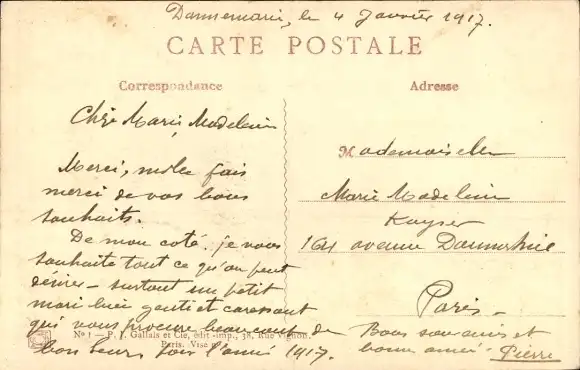 Dannemarie, le 4 Janvier 1917.
CARTE POSTALE
Correspondance
Adresse
Chère Marie Madeleine
Merci, mille fois
merci de vos bons
souhaits.
De mon coté, je vous
souhaite tout ce qu'on peut
désirer - surtout un petit
mari bien gentil et caressant
qui vous procure beaucoup de
bonheur pour l'année 1917.
Bons souvenirs et
bonne année Pierre
Mademoiselle
Marie Madeleine
Kayser
164 avenue
Paris
No 1 - P. J. Gallais et Cie, édit.-imp., 38, Rue Vignon,
Paris. Visé